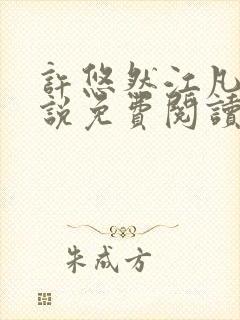 許悠然江凡
說免費閱讀
朱成方